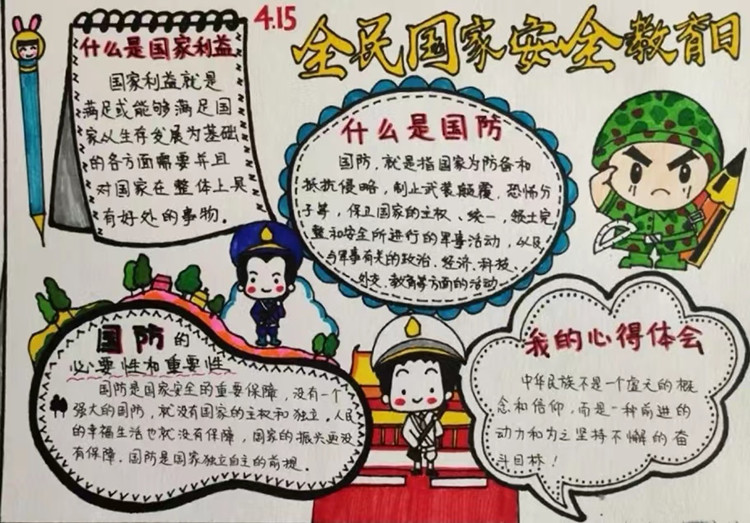 4.15
全民国家安全教育日
什么是国家利益
国家利益就是
满足或能够满足国
家以生存发展为基础
的各方面需要并且
对国家在整体上具
有好处的事物。
什么是国防
国防，就是指国家为防备和
抵抗侵略，制止武装颠覆、恐怖分
子等，保卫国家的主权、统一，领土完
整和安全所进行的军事活动，以及
与军事有关的政治、经济、科技、
外交、教育等方面的活动
国防的
必要性和重要性
国防是国家安全的重要保障，没有一个
强大的国防，就没有国家的主权和独立，人民
的幸福生活也就没有保障，国家的振兴更没
有保障。国防是国家独立自主的前提。
我的心得体会
中华民族不是一个虚无的概
念和信仰，而是一种前进的
动力和为之坚持不懈的奋
斗目标！